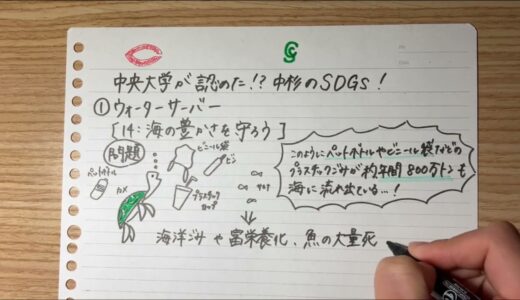 中央大学が認めた!?中杉のSDGs!
①ウォーターサーバー
[14:海の豊かさを守ろう]
問題
ペットボトル
カメ
ビニール袋
ビン
プラスチック
カップ
このようにペットボトルやビニール袋などの
プラスチックゴミが約年間800万トンも
海に流れ出ている…!
海洋ゴミや富栄養化、魚の大量死